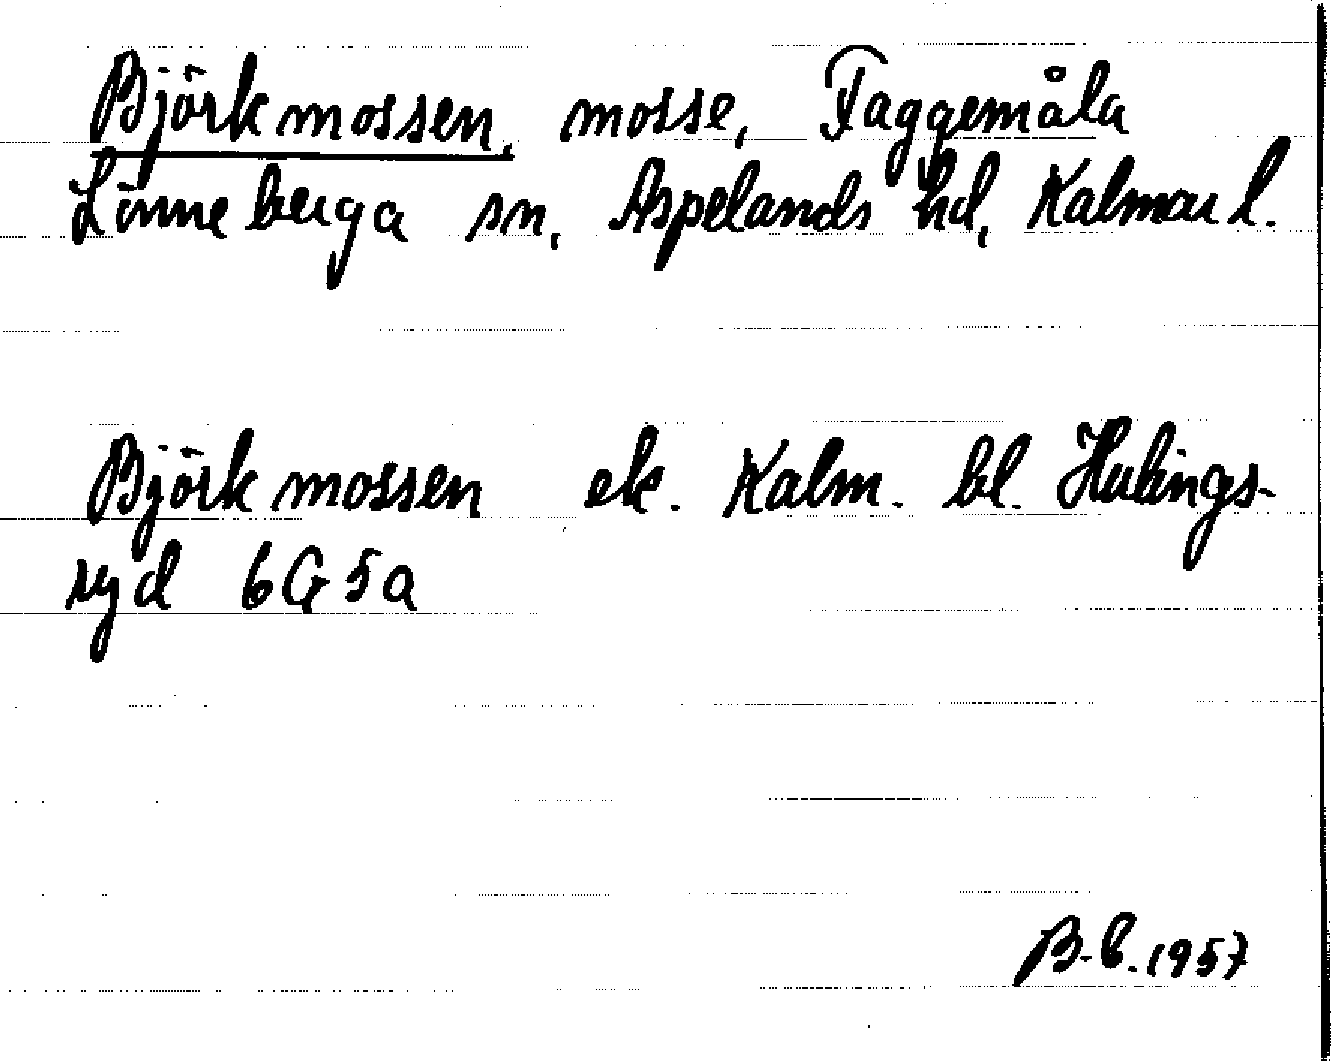 Björkmossen, mosse, Faggemåla
Lönneberga sn, Aspelands hd, Kalmar l.
Björkmossen ek. Kalm. bl. Hulings-
ryd 6G5a
B-b. 1957